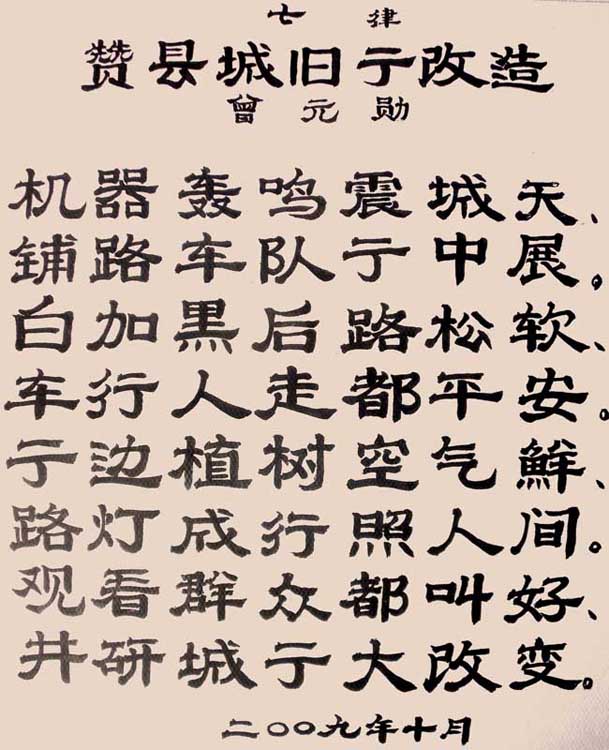 七律
赞县城旧亍改造
曾元勋
机器轰鸣震城天、
铺路车队亍中展。
白加黑后路松软、
车行人走都平安。
亍边植树空气鲜、
路灯成行照人间。
观看群众都叫好、
井研城亍大改变。
二〇〇九年十月